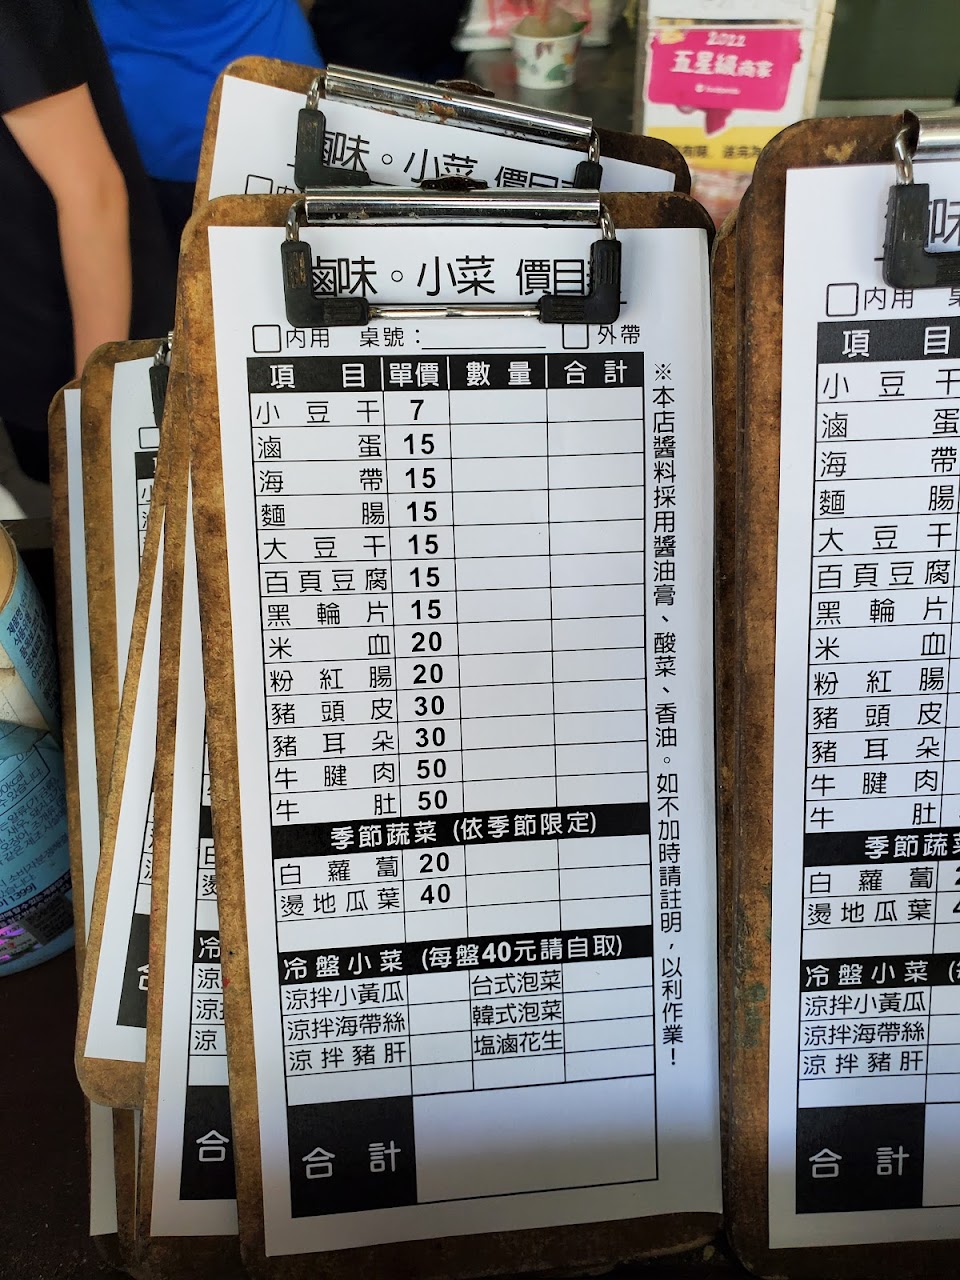 2022
五星級商家
滷味。小菜 價目
滷味。小菜 價目表
□內用 桌號：________ □外帶
項目 單價 數量 合計
小豆干 7
滷蛋 15
海帶 15
麵腸 15
大豆干 15
百頁豆腐 15
黑輪片 15
米血 20
粉紅腸 20
豬頭皮 30
豬耳朵 30
牛腱肉 50
牛肚 50
季節蔬菜 (依季節限定)
白蘿蔔 20
燙地瓜葉 40
冷盤小菜 (每盤40元請自取)
涼拌小黃瓜 台式泡菜
涼拌海帶絲 韓式泡菜
涼拌豬肝 塩滷花生
合計
※本店醬料採用醬油膏、酸菜、香油。如不加時請註明，以利作業！
□內用
項目
小豆干
滷蛋
海帶
麵腸
大豆干
百頁豆腐
黑輪片
米血
粉紅腸
豬頭皮
豬耳朵
牛腱肉
牛肚
季節蔬菜
白蘿蔔
燙地瓜葉
冷盤小菜
涼拌小黃瓜
涼拌海帶絲
涼拌豬肝
合計